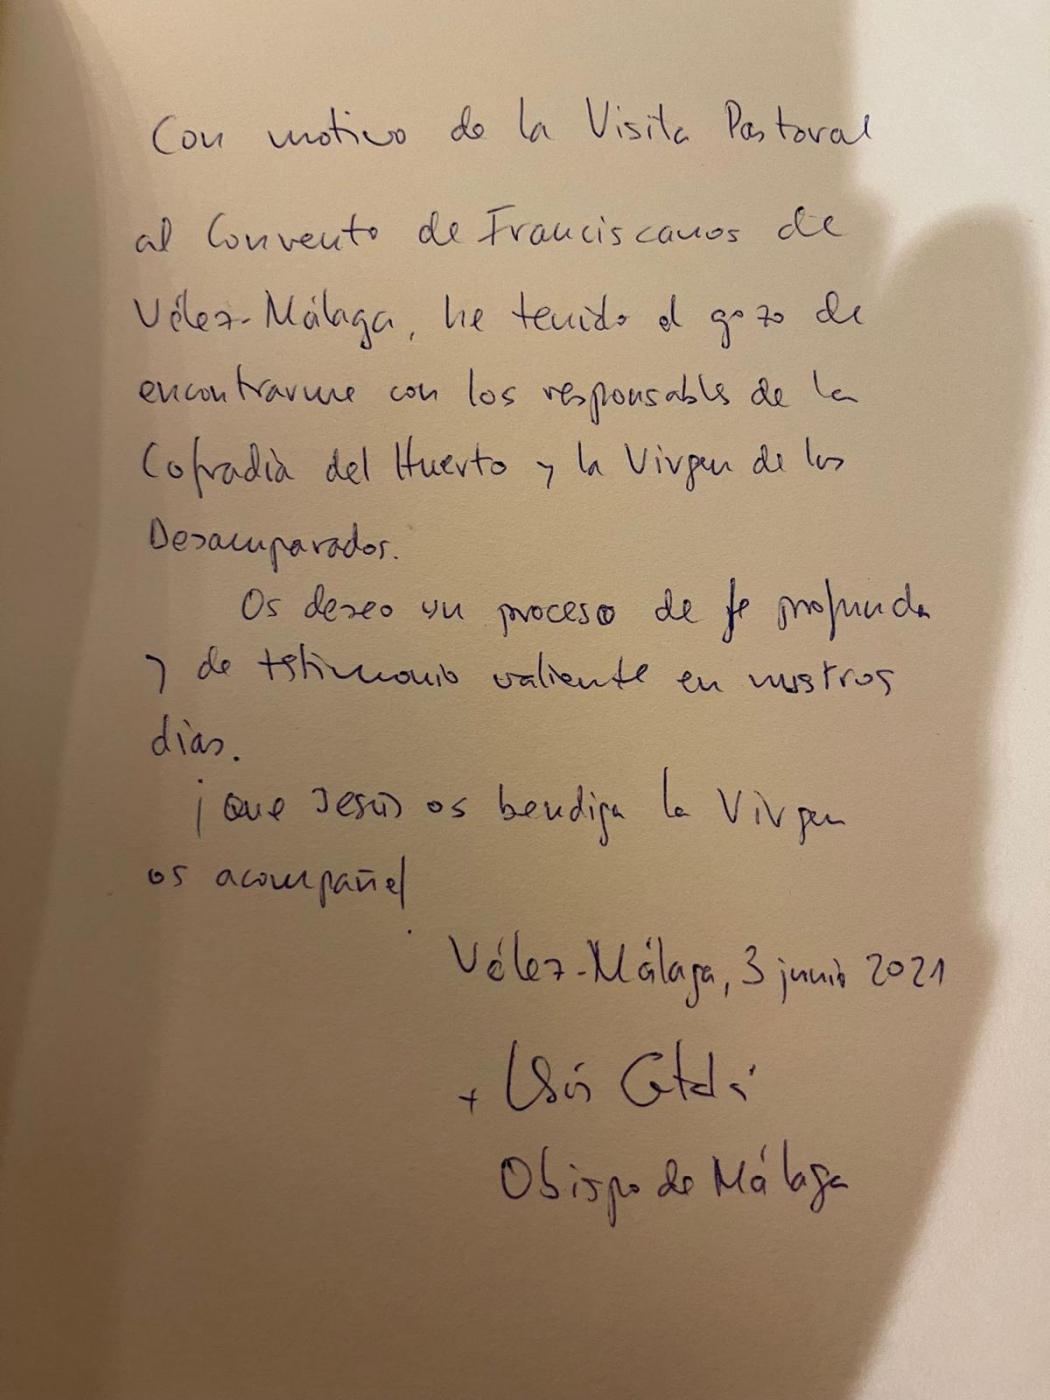 Con motivo de la Visita Pastoral
al Convento de Franciscanos de
Vélez-Málaga, he tenido el gozo de
encontrarme con los responsables de la
Cofradía del Huerto y la Virgen de los
Desamparados.
Os deseo un proceso de fe profunda
y de testimonio valiente en nuestros
días.
¡Que Jesús os bendiga la Virgen
os acompañe!
Vélez-Málaga, 3 junio 2021
+ Catalá
Obispo de Málaga